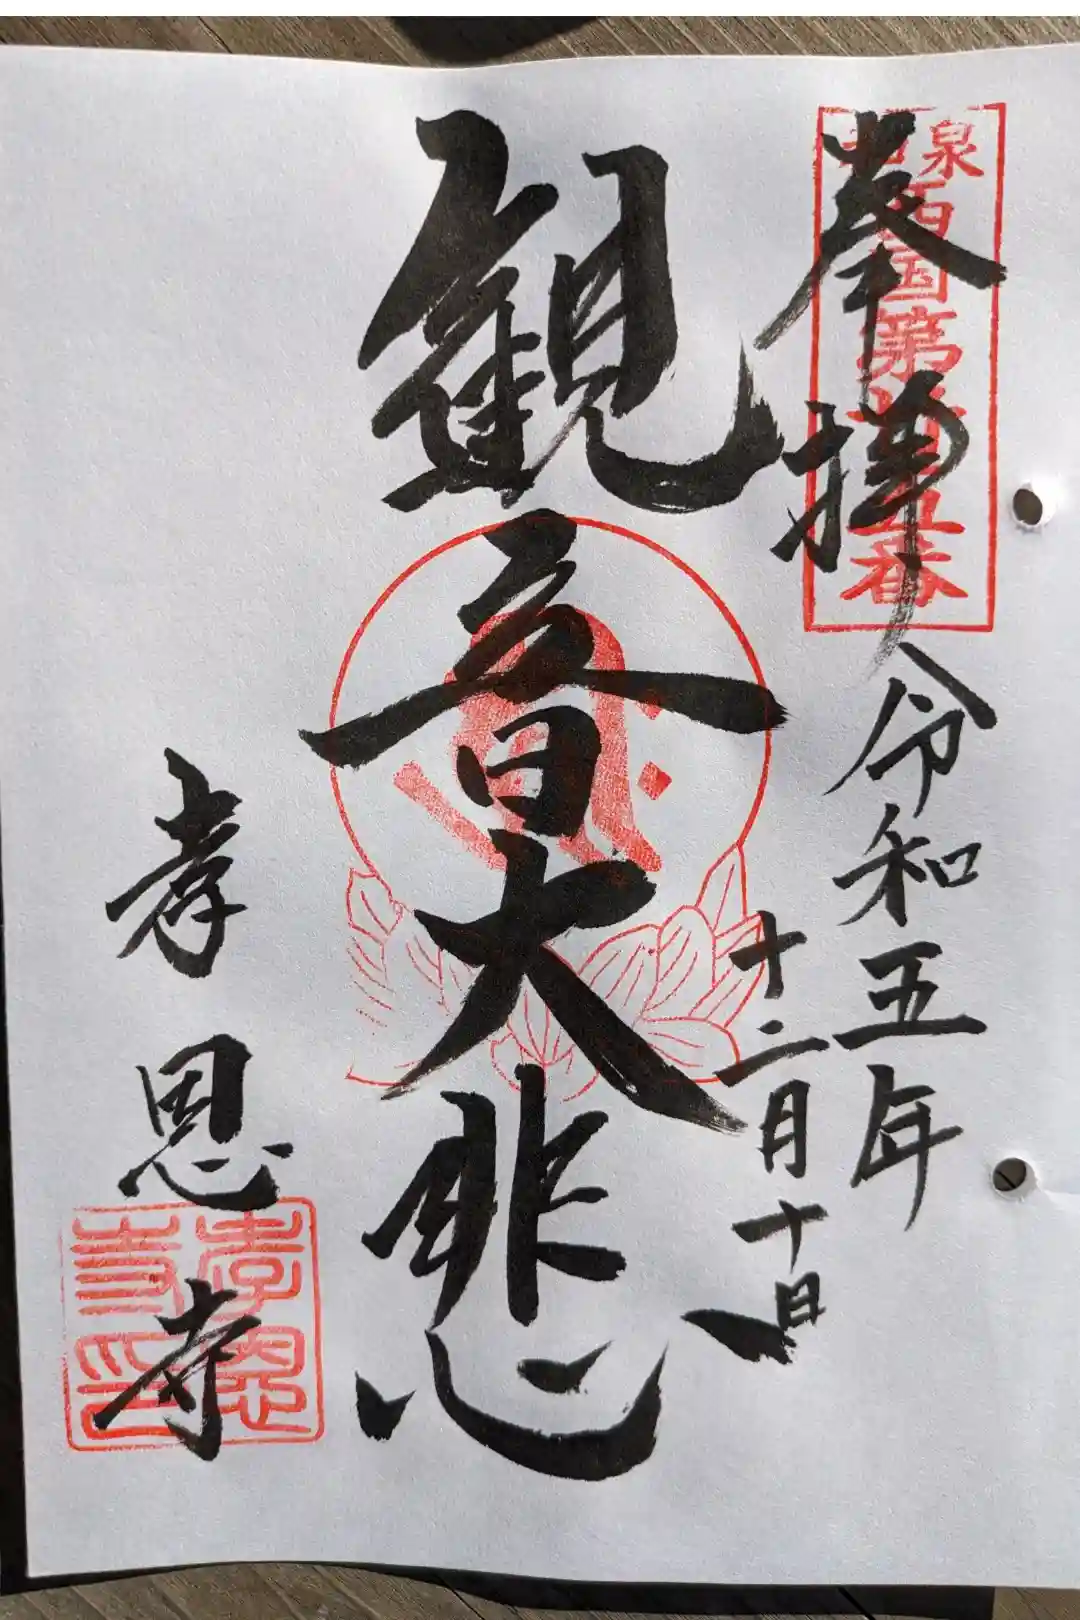 奉拝
令和五年
十二月十日
観音大悲
孝恩寺
泉
西国第
五番
孝恩
寺印